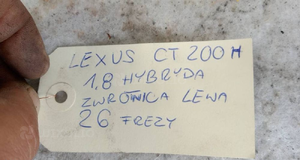 LEXUS CT 200H
1,8 HYBRYDA
ZWROTNICA LEWA
26 FREZY